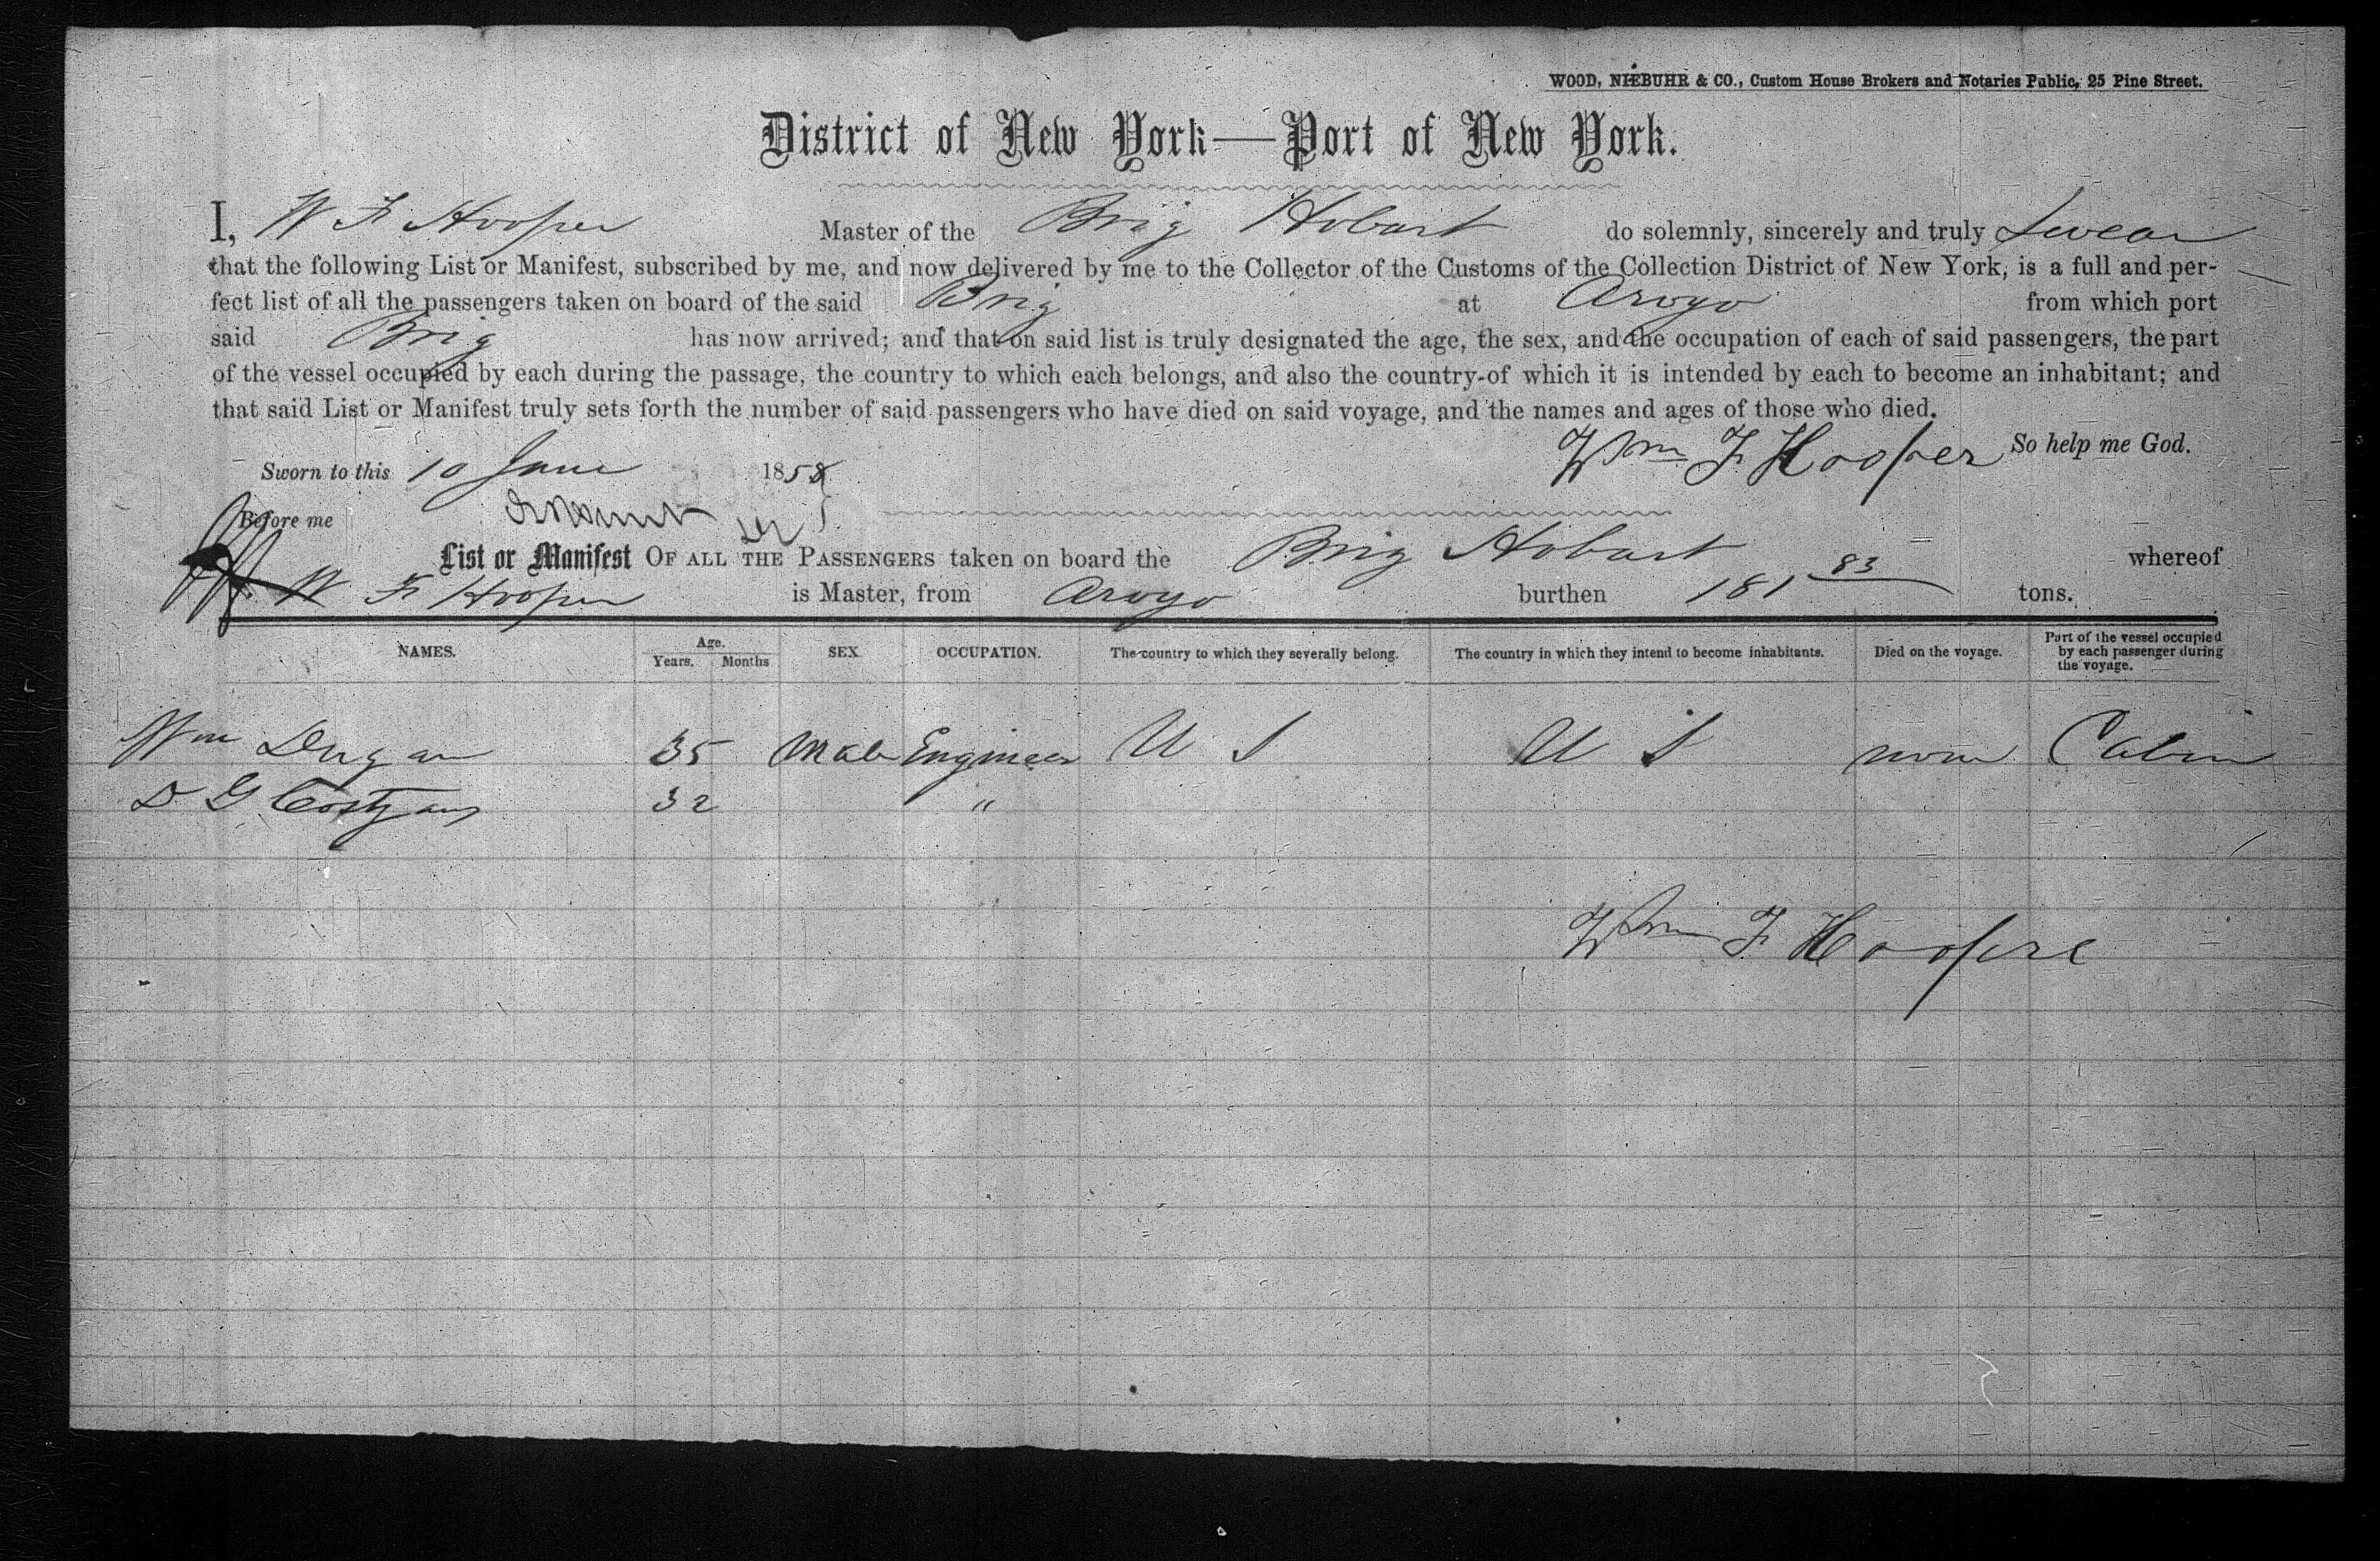 WOOD, NIEBUHR & CO., Custom House Brokers and Notaries Public, 25 Pine Street.
District of New York—Port of New York.
I, W F Hooper Master of the Brig Hobart do solemnly, sincerely and truly Swear
that the following List or Manifest, subscribed by me, and now delivered by me to the Collector of the Customs of the Collection District of New York, is a full and per-
fect list of all the passengers taken on board of the said Brig at Aroyo from which port
said Brig has now arrived; and that on said list is truly designated the age, the sex, and the occupation of each of said passengers, the part
of the vessel occupied by each during the passage, the country to which each belongs, and also the country of which it is intended by each to become an inhabitant; and
that said List or Manifest truly sets forth the number of said passengers who have died on said voyage, and the names and ages of those who died.
Wm F Hooper So help me God.
Sworn to this 10 June 1858
Before me
List or Manifest OF ALL THE PASSENGERS taken on board the Brig Hobart whereof
W F Hooper is Master, from Aroyo burthen 181 83 tons.
NAMES. Age. Years. Months SEX OCCUPATION. The country to which they severally belong. The country in which they intend to become inhabitants. Died on the voyage. Part of the vessel occupied by each passenger during the voyage.
Wm Dugan 35 Male Engineer U S U S none Cabin
D G 32 "
Wm F Hooper